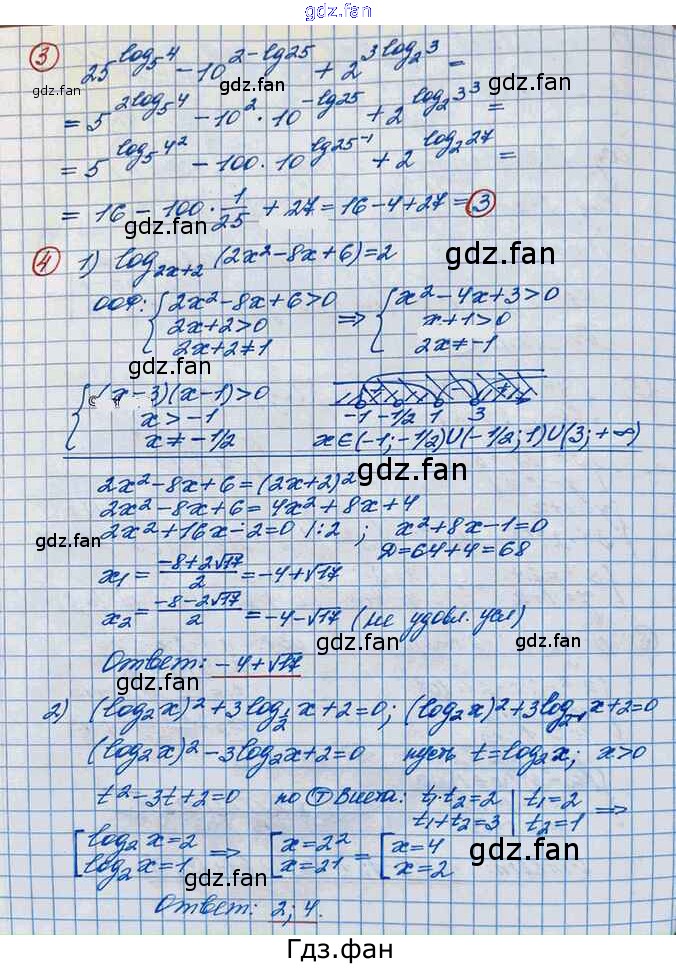 gdz.fan
③ 25^(log₅4) − 10^(2−lg25) + 2^(3log₂3) =
gdz.fan gdz.fan gdz.fan
= 5^(2log₅4) − 10² · 10^(−lg25) + 2^(log₂3³) =
= 5^(log₅4²) − 100 · 10^(lg25⁻¹) + 2^(log₂27) =
= 16 − 100 · 1/25 + 27 = 16 − 4 + 27 = 3
gdz.fan gdz.fan
④ 1) log₂ₓ₊₂ (2x² − 8x + 6) = 2
gdz.fan
ООФ: { 2x² − 8x + 6 > 0 ⇒ { x² − 4x + 3 > 0
2x + 2 > 0 x + 1 > 0
2x + 2 ≠ 1 2x ≠ −1
gdz.fan
{ (x − 3)(x − 1) > 0
x > −1 −1 −1/2 1 3
x ≠ −1/2 x ∈ (−1; −1/2) ∪ (−1/2; 1) ∪ (3; +∞)
gdz.fan
2x² − 8x + 6 = (2x + 2)²
2x² − 8x + 6 = 4x² + 8x + 4
gdz.fan
2x² + 16x − 2 = 0 |:2 ; x² + 8x − 1 = 0
gdz.fan
D = 64 + 4 = 68
x₁ = (−8 + 2√17)/2 = −4 + √17
x₂ = (−8 − 2√17)/2 = −4 − √17 (не удовл. усл)
gdz.fan gdz.fan
Ответ: −4 + √17
gdz.fan
2) (log₂x)² + 3log_(1/2) x + 2 = 0; (log₂x)² + 3log_(2⁻¹) x + 2 = 0
(log₂x)² − 3log₂x + 2 = 0 пусть t = log₂x; x > 0
gdz.fan
t² − 3t + 2 = 0 по Ⓣ Виета: t₁·t₂ = 2 | t₁ = 2 ⇒
t₁ + t₂ = 3 | t₂ = 1
[ log₂x = 2 ⇒ [ x = 2² = [ x = 4
log₂x = 1 x = 2¹ x = 2
gdz.fan gdz.fan
Ответ: 2; 4.
gdz.fan
Гдз.фан